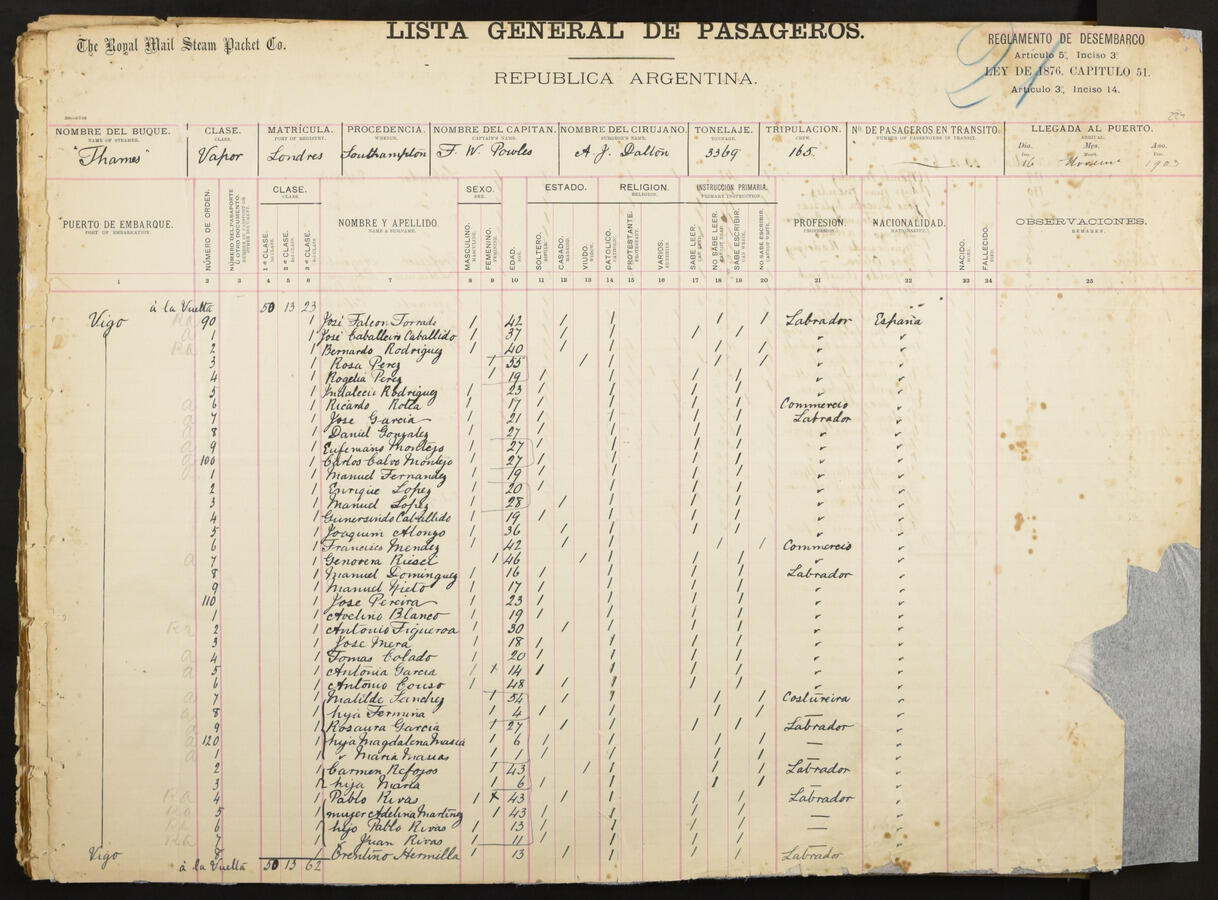 LISTA GENERAL DE PASAGEROS.
The Royal Mail Steam Packet Co.
REPUBLICA ARGENTINA.
REGLAMENTO DE DESEMBARCO
Artículo 5º, Inciso 3º
LEY DE 1876, CAPITULO 51.
Artículo 3º, Inciso 14.
21
224
NOMBRE DEL BUQUE. CLASE. MATRÍCULA. PROCEDENCIA. NOMBRE DEL CAPITAN. NOMBRE DEL CIRUJANO. TONELAJE. TRIPULACION. Nº DE PASAGEROS EN TRANSITO. LLEGADA AL PUERTO.
NAME OF STEAMER. CLASS. PORT OF REGISTRY. WHENCE. CAPTAIN'S NAME. SURGEON'S NAME. TONNAGE. CREW. NUMBER OF PASSENGERS IN TRANSIT. ARRIVAL.
Dia. Mes. Ano.
"Thames" Vapor Londres Southampton F. W. Powles A. J. Dalton 3369 165 16 1903
CLASE. SEXO. ESTADO. RELIGION. INSTRUCCIÓN PRIMARIA.
CLASS. SEX. RELIGION. PRIMARY INSTRUCTION.
PUERTO DE EMBARQUE. NÚMERO DE ORDEN. NÚMERO DEL PASAPORTE U OTRO DOCUMENTO. 1ª CLASE. 2ª CLASE. 3ª CLASE. NOMBRE Y APELLIDO. MASCULINO. FEMENINO. EDAD. SOLTERO. CASADO. VIUDO. CATOLICO. PROTESTANTE. VARIOS. SABE LEER. NO SABE LEER. SABE ESCRIBIR. NO SABE ESCRIBIR. PROFESION. NACIONALIDAD. NACIDO. FALLECIDO. OBSERVACIONES.
PORT OF EMBARKATION. NAME & SURNAME. PROFESSION. NATIONALITY. REMARKS.
1 2 3 4 5 6 7 8 9 10 11 12 13 14 15 16 17 18 19 20 21 22 23 24 25
à la Vuelta 50 13 23
Vigo 90 1 José Falcon Torrado 1 42 1 1 1 1 Labrador España
1 1 José Caballeiro Caballido 1 37 1 1 1 1 "  "
2 1 Bernardo Rodriguez 1 40 1 1 1 1 " "
3 1 Rosa Perez 1 55 1 1 1 1 " "
4 1 Rogelia Perez 1 19 1 1 1 1 " "
5 1 Indalecio Rodriguez 1 23 1 1 1 1 " "
6 1 Ricardo Rotea 1 17 1 1 1 1 Commercio "
7 1 Jose Garcia 1 21 1 1 1 1 Labrador "
8 1 Daniel Gonzalez 1 27 1 1 1 1 " "
9 1 Eufemano Montejo 1 27 1 1 1 1 " "
100 1 Carlos Calvo Montejo 1 27 1 1 1 1 " "
1 1 Manuel Fernandez 1 19 1 1 1 1 " "
2 1 Enrique Lopez 1 20 1 1 1 1 " "
3 1 Manuel Lopez 1 28 1 1 1 1 " "
4 1 Gumersindo Caballido 1 19 1 1 1 1 " "
5 1 Joaquim Alonzo 1 36 1 1 1 1 " "
6 1 Francisco Mendez 1 42 1 1 1 1 Commercio "
7 1 Genovera 1 46 1 1 1 1 " "
8 1 Manuel Dominguez 1 16 1 1 1 1 Labrador "
9 1 Manuel Nieto 1 17 1 1 1 1 " "
110 1 Jose Pereira 1 23 1 1 1 1 " "
1 1 Avelino Blanco 1 19 1 1 1 1 " "
2 1 Antonio Figueroa 1 30 1 1 1 1 " "
3 1 Jose Mera 1 18 1 1 1 1 " "
4 1 Tomas Colado 1 20 1 1 1 1 " "
5 1 Antonia Garcia 1 x 14 1 1 1 1 " "
6 1 Antonio Couso 1 48 1 1 1 1 " "
7 1 Matilde Sanchez 1 54 1 1 1 1 Costureira "
8 1 hija Fermina 1 4 1 1 1 1 — "
9 1 Rosaura Garcia 1 27 1 1 1 1 Labrador "
120 1 hija Magdalena Masia 1 6 1 1 1 1 — "
1 1 " Maria Masias 1 1 1 1 1 1 — "
2 1 Carmen Refojos 1 43 1 1 1 1 Labrador "
3 hija Maria 1 6 1 1 1 1 "
4 1 Pablo Rivas 1 x 43 1 1 1 1 Labrador "
5 1 mujer Adelina Martinez 1 43 1 1 1 1 — "
6 1 hijo Pablo Rivas 1 13 1 1 1 1 — "
7 1 " Juan Rivas 1 11 1 1 1 1 — "
Vigo 8 1 Orentino Hermilla 1 13 1 1 1 1 Labrador "
à la Vuelta 50 13 62